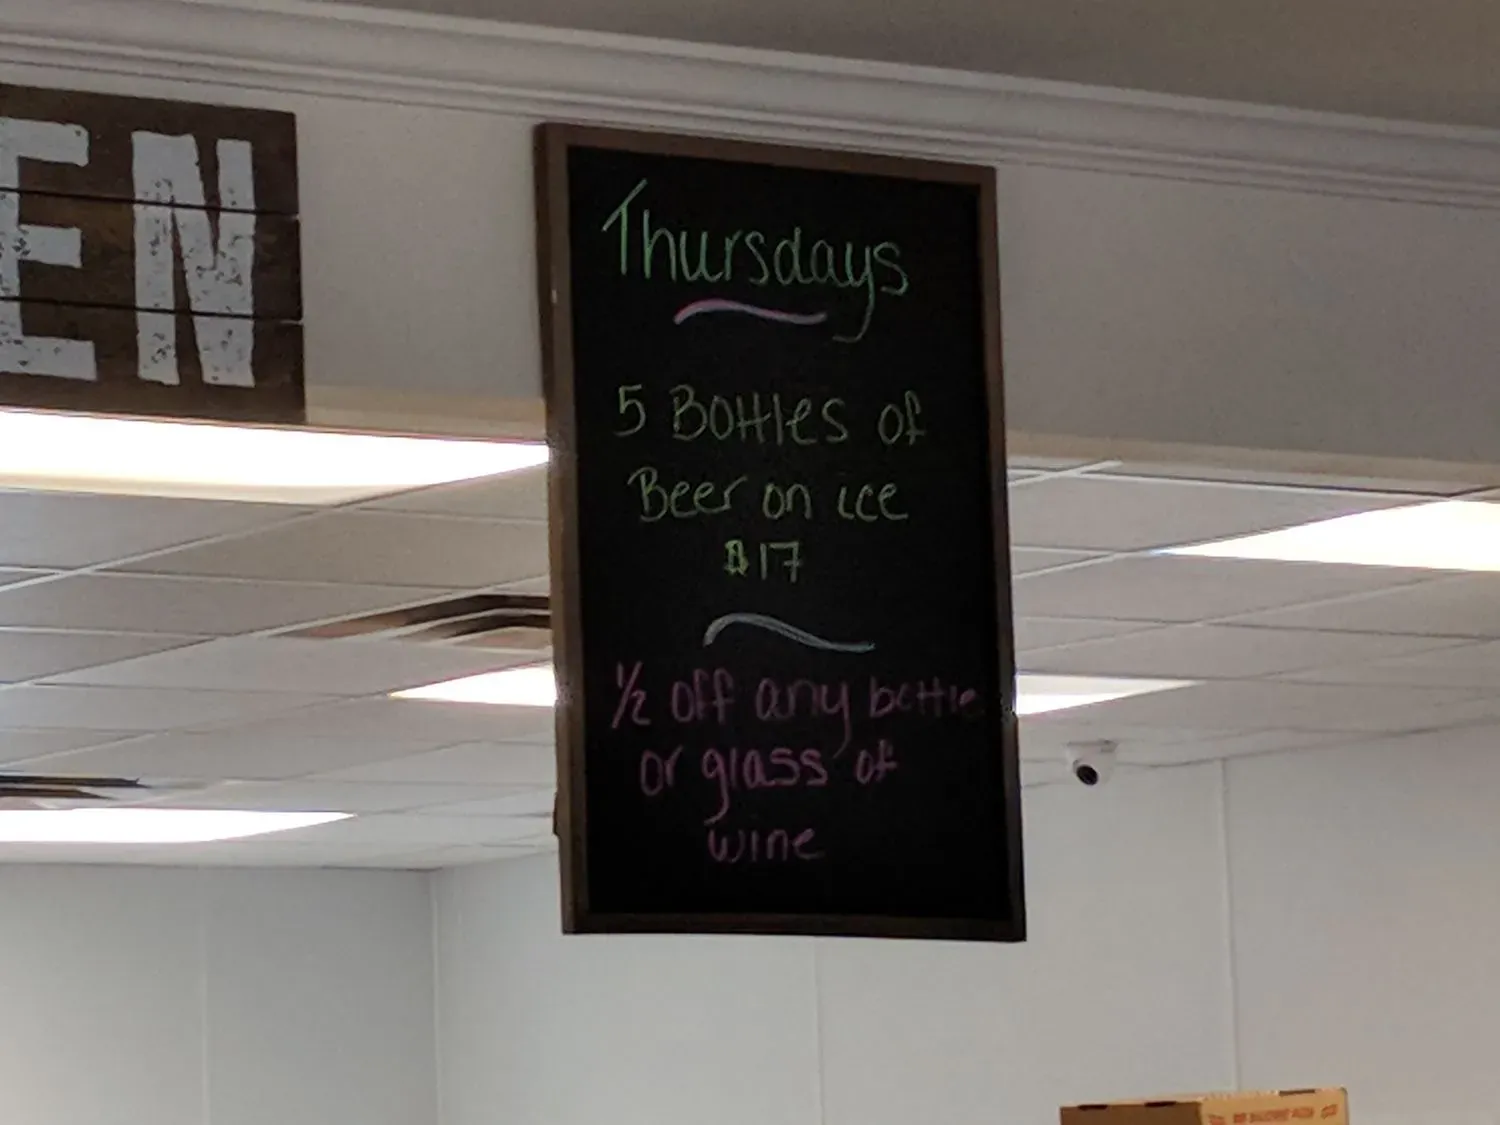 EN
Thursdays
5 Bottles of
Beer on ice
$17
1/2 off any bottle
or glass of
wine